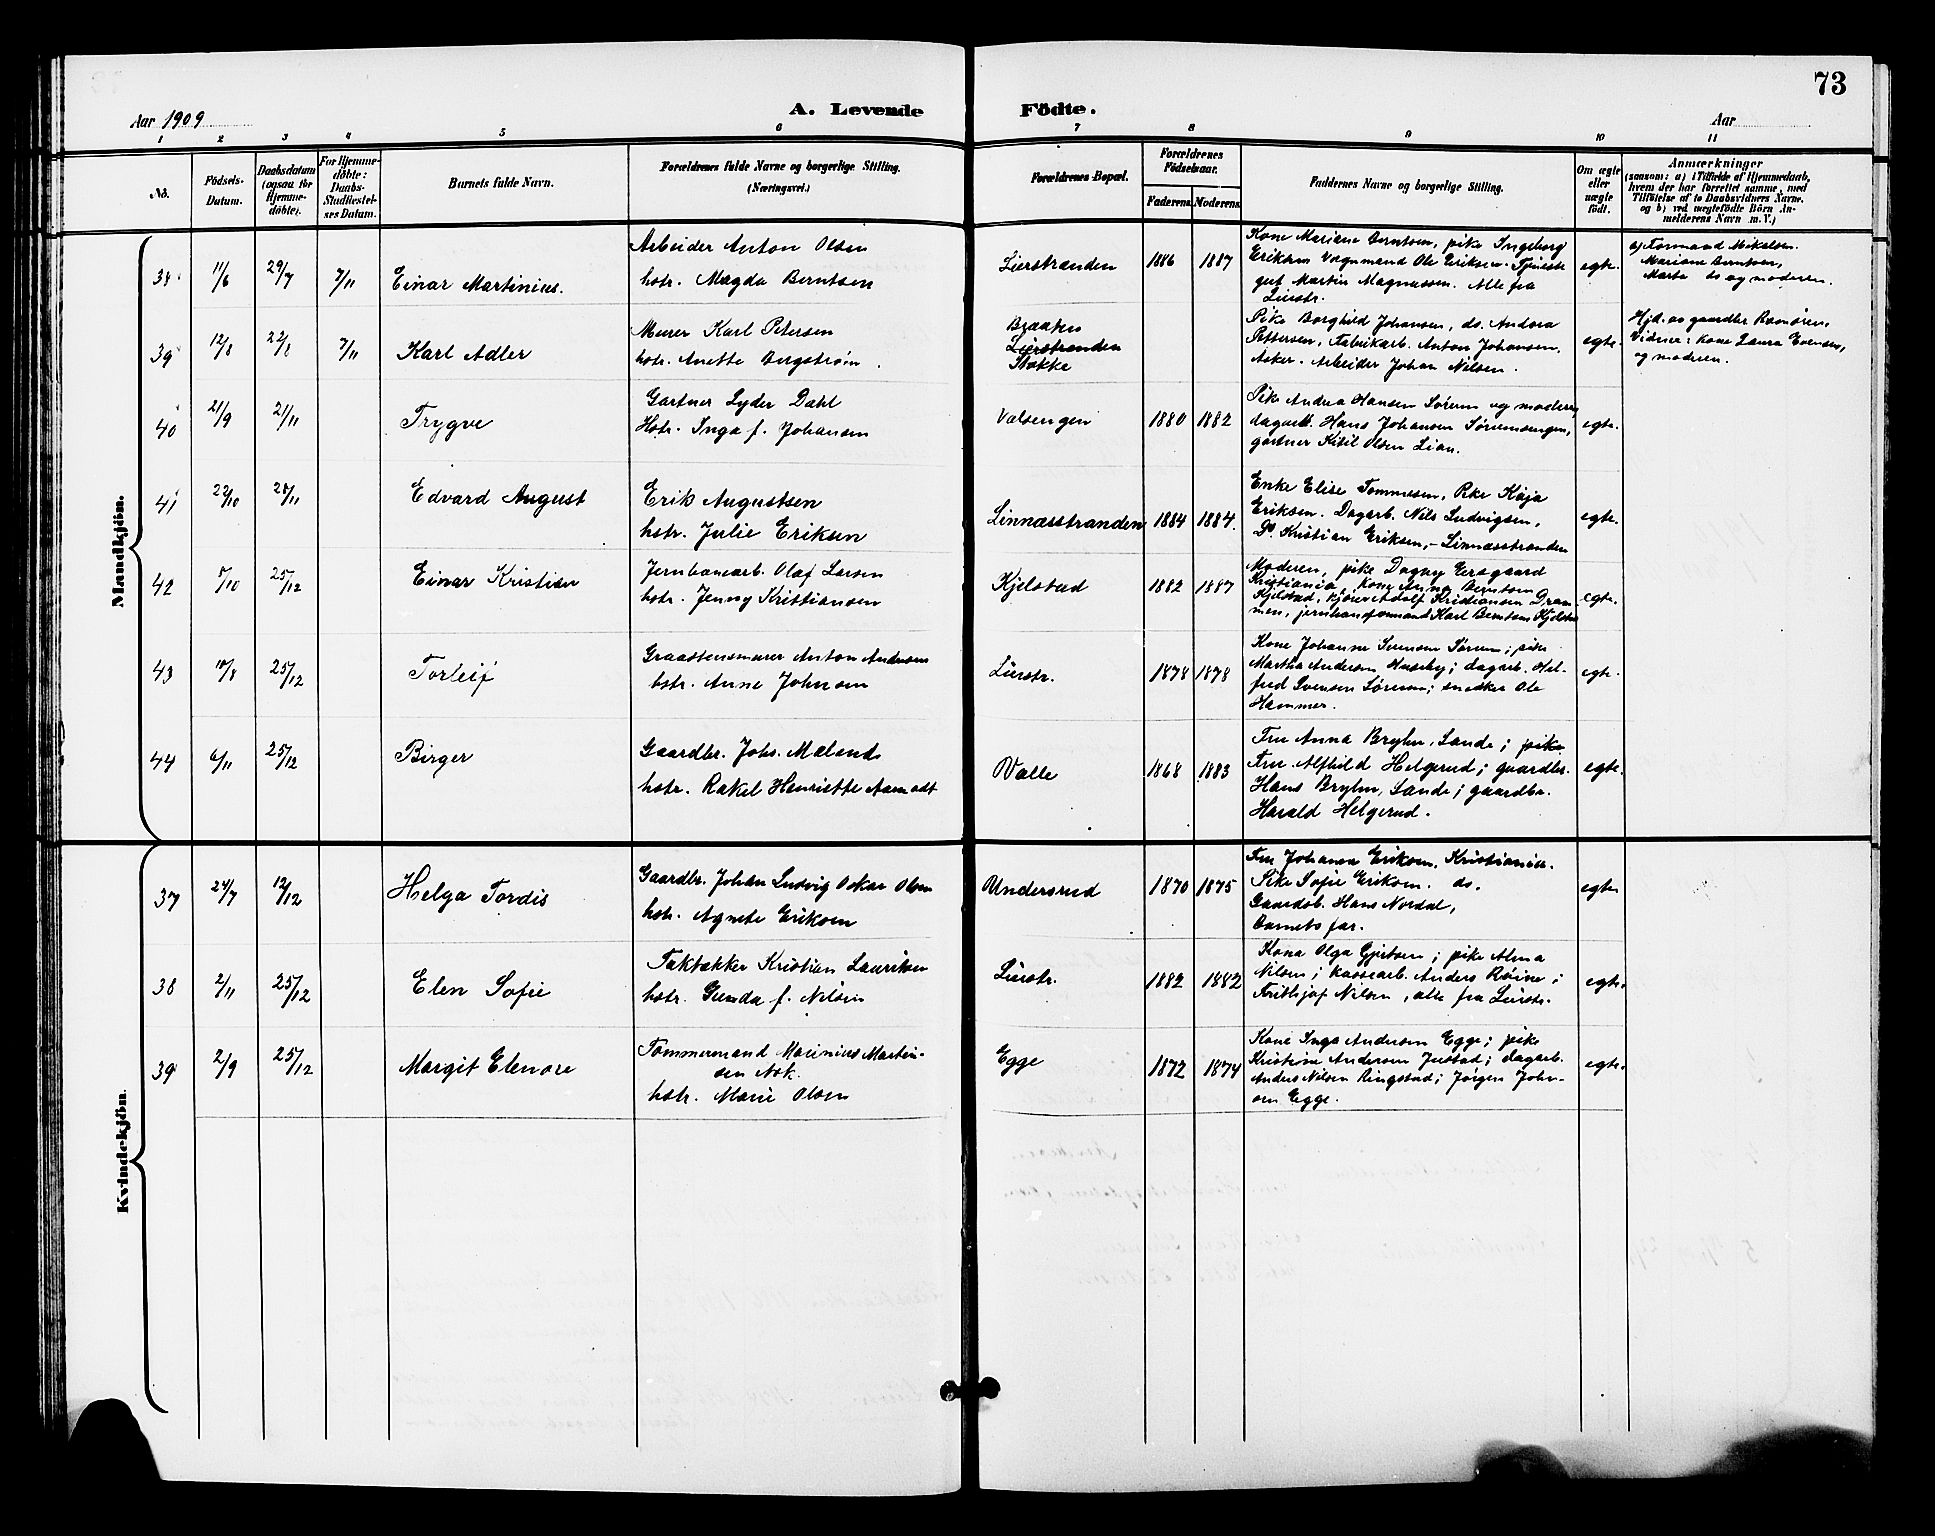 73
Aar 1909
A. Levende Födte.
Aar
1 2 3 4 5 6 7 8 9 10 11
No.
Födsels-Datum.
Daabsdatum (ogsaa for Hjemmedöbte).
For Hjemmedöbte: Daabs-Stadfæstelses Datum.
Barnets fulde Navn.
Forældrenes fulde Navne og borgerlige Stilling. (Næringsvei.)
Forældrenes Bopæl.
Forældrenes Födselsaar.
Faderens. Moderens.
Faddernes Navne og borgerlige Stilling.
Om ægte eller uægte födt.
Anmærkninger
(saasom: a) i Tilfælde af Hjemmedaab, hvem der har forrettet samme, med Tilföielse af to Daabsvidners Navne. og b) ved uægtefödte Börn Anmelderens Navn m. V.)
Mandkjön.
38 11/6 29/7 7/11 Einar Martinius.
Arbeider Anton Olsen
hstr. Magda Berntsen
Lierstranden 1886 1887
Kone Mariane Berntsen, pike Ingeborg
Eriksen Vognmand Ole Eriksen. Tjeneste
gut Martin Magnussen. Alle fra
Lierstr.
egte.
a) Formand Mikalsen.
Mariane Berntsen,
Marta do og moderen.
39 12/8 22/8 7/11 Karl Adler
Murer Karl Petersen
hstr. Anette Bergstrøm.
Braaten
Lierstranden
Stokke
Pike Borghild Johansen, do. Andora
Pettersen, Fabrikarb. Anton Johansen,
Asker. Arbeider Johan Nilsen.
egte.
Hjd. av gaardbr
Vidner: kone Laura Evensen,
og moderen.
40 21/9 21/11 Trygve
Gartner Lyder Dahl
Hstr. Inga f. Johansen
Valsengen 1880 1882
Pike Andrea Hansen Sørum og moderen,
dagarb. Hans Johansen Sørumsengen,
gartner Kitil Olsen Lian.
egte.
41 22/10 28/11 Edvard August
Erik Augustsen
hstr. Julie Eriksen
Linnæsstranden 1884 1884.
Enke Elise Tommesen, Pike Kaja
Eriksen. Dagarb. Nils Ludvigsen,
Do. Kristian Eriksen, - Linnæsstranden
egte.
42 5/10 25/12 Einar Kristian
Jernbanearb. Olaf Larsen
hstr. Jenny Kristiansen
Kjelstad 1882 1887
Moderen, pike Dagny
Kristiania, kone Anna Berntsen
Kjelstad, Adolf Kristiansen Dram-
men, jernbaneformand Karl Berntsen Kjelstad
egte.
43 10/8 25/12 Torleif
Graastensmurer Anton Andersen
hstr. Anne Johnsen
Lierstr. 1878 1878
Kone Johanne Svensen Sørum; pike
Martha Andersen Huseby; dagarb. Hel-
fred Svensen Sørum; snedker Ole
Hammer.
egte.
44 6/11 25/12 Birger
Gaardbr. Johs. Mæland
hstr. Rakel Henriette Aamodt
Valle 1868 1883
Fru Anna Bryhn, Sande; pike
Fru Alfhild Helgerud; gaardbr.
Hans Bryhn, Sande; gaardbr.
Harald Helgerud.
egte.
Kvindekjön.
37 24/7 12/12 Helga Tordis
Gaardbr. Johan Ludvig Oskar Olsen
hstr. Agnete Eriksen
Undersrud 1870 1875
Fru Johanna Eriksen, Kristiania.
Pike Sofie Eriksen. do.
Gaardsb. Hans Nordal,
Barnets far.
egte
38 2/11 25/12 Elen Sofie
Taktækker Kristian Lauritsen
hstr. Gunda f. Nilsen
Lierstr. 1882 1882
Kona Olga Gjertsen; pike Alma
Nilsen; kassearb. Anders Røine;
Frithjof Nilsen, alle fra Lierstr.
egte.
39 2/9 25/12 Margit Elenore
Tømmermand Marinius Martin-
sen Nok.
hstr. Marie Olsen
Egge 1872 1874
Kone Inga Andersen Egge; pike
Kristine Andersen Justad; dagarb.
Anders Nilsen Ringstad; Jørgen John-
sen Egge.
egte.